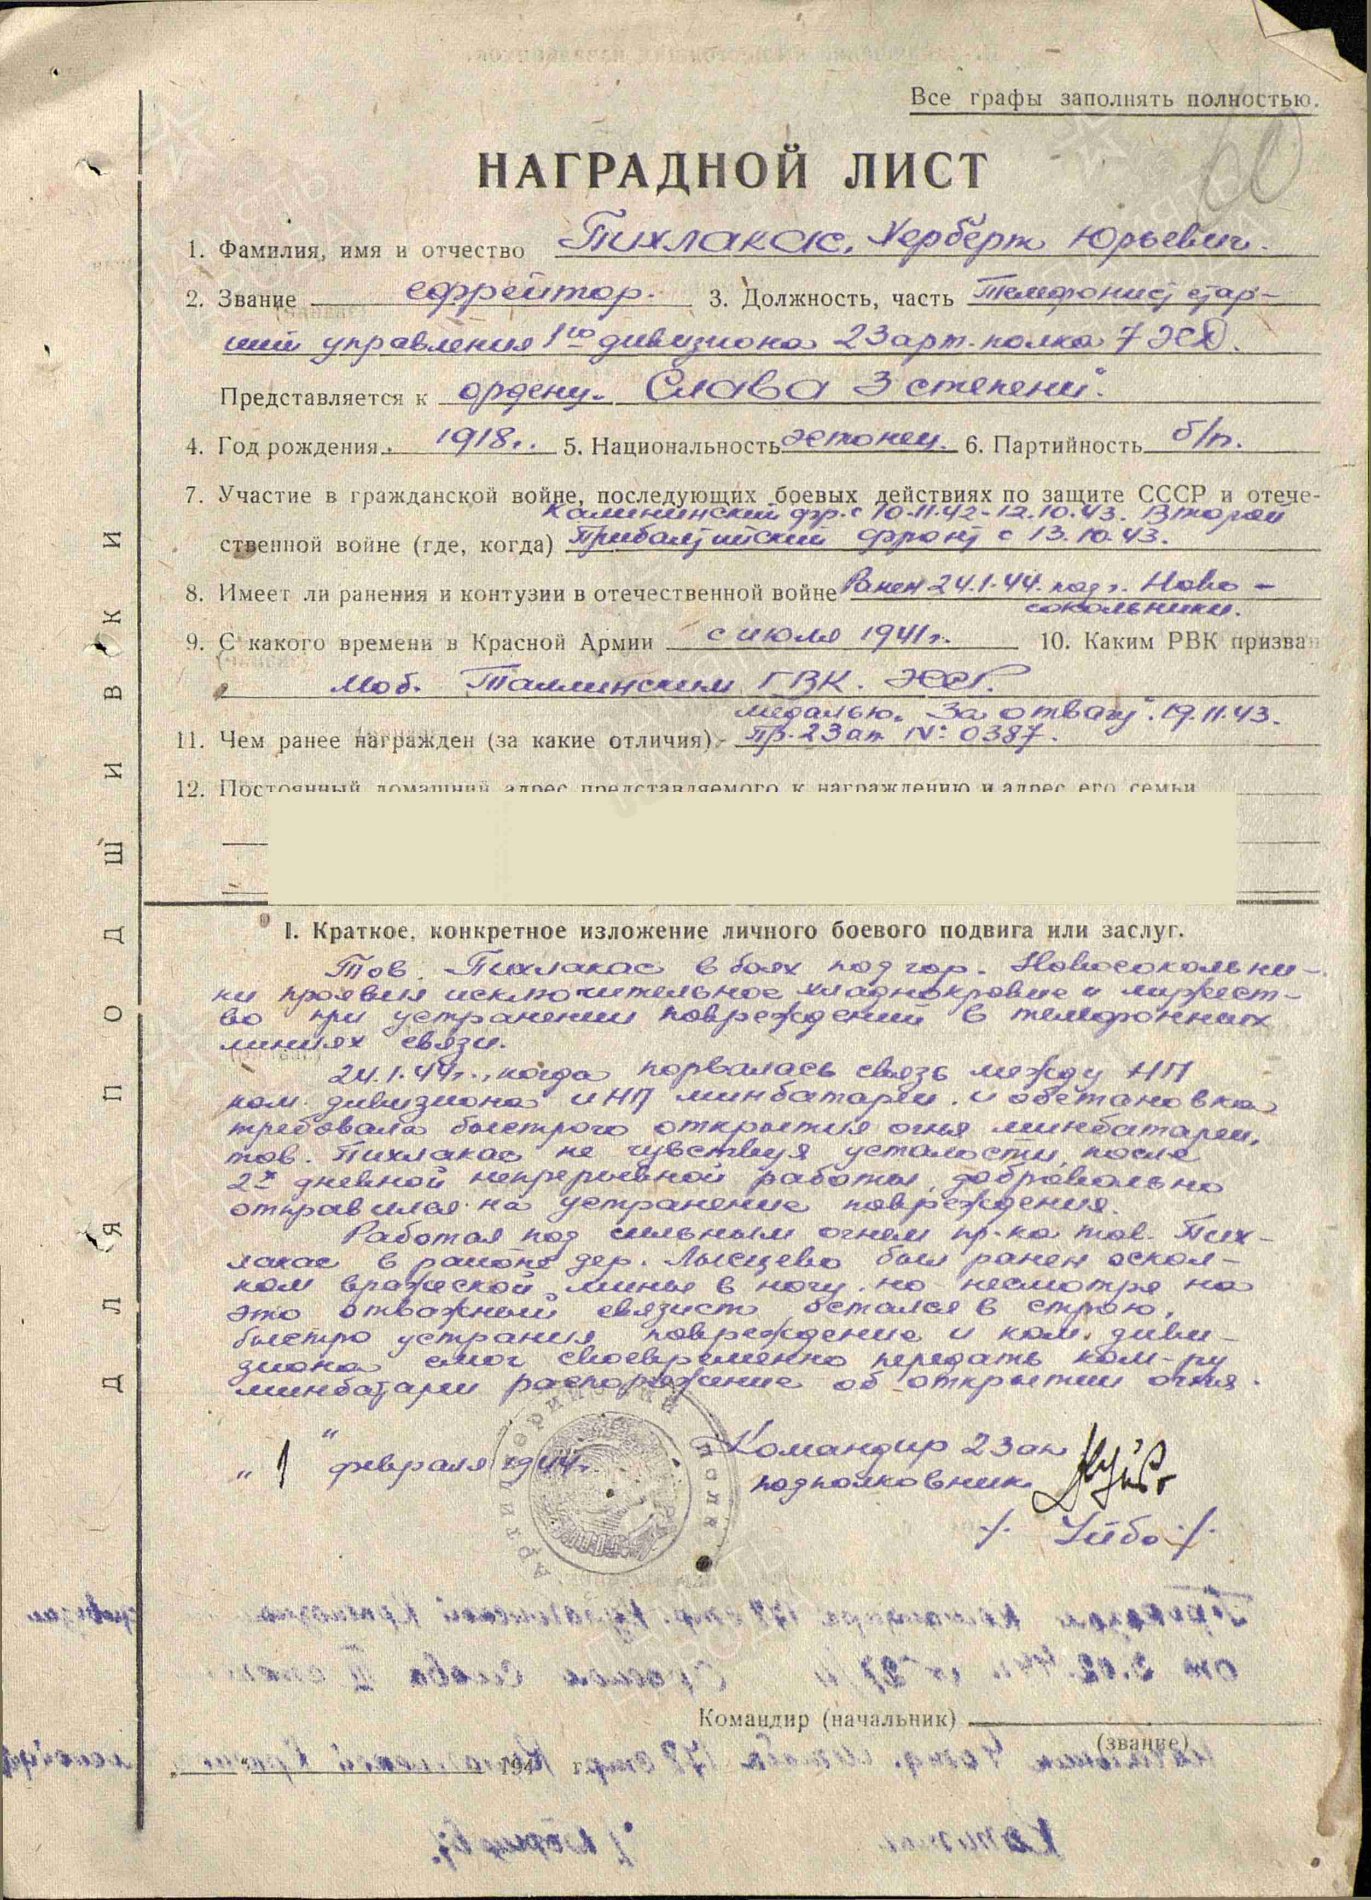 Все графы заполнять полностью.
60
НАГРАДНОЙ ЛИСТ
1. Фамилия, имя и отчество Пихлакас, Херберт Юрьевич.
2. Звание ефрейтор. 3. Должность, часть Телефонист стар-
ший управления 1го дивизиона 23 арт. полка 7 ЭСД.
Представляется к ордену „Слава 3 степени“.
4. Год рождения 1918г. 5. Национальность эстонец. 6. Партийность б/п.
7. Участие в гражданской войне, последующих боевых действиях по защите СССР и отече-
Калининский фр. с 10.11.42-12.10.43. Второй
ственной войне (где, когда) Прибалтийский фронт с 13.10.43.
8. Имеет ли ранения и контузии в отечественной войне Ранен 24.1.44. под г. Ново-
сокольники.
9. С какого времени в Красной Армии с июля 1941г. 10. Каким РВК призван
Моб. Таллинским ГВК. ЭССР.
медалью „За отвагу“. 19.11.43.
11. Чем ранее награжден (за какие отличия) пр. 23 ап № 0387.
12. Постоянный домашний адрес представляемого к награждению и адрес его семьи
I. Краткое, конкретное изложение личного боевого подвига или заслуг.
Тов. Пихлакас в боях под гор. Новосокольни-
ки проявил исключительное хладнокровие и мужест-
во при устранении повреждений в телефонных
линиях связи.
24.1.44г., когда порвалась связь между НП
ком. дивизиона и НП минбатареи, и обстановка
требовала быстрого открытия огня минбатареи,
тов. Пихлакас не чувствуя усталости, после
2х дневной непрерывной работы, добровольно
отправился на устранение повреждения.
Работая под сильным огнем пр-ка тов. Пих-
лакас в районе дер. Лысцево был ранен оскол-
ком вражеской мины в ногу, но несмотря на
это отважный связист остался в строю,
быстро устранил повреждение и ком. диви-
зиона смог своевременно передать ком-ру
минбатареи распоряжение об открытии огня.
„1“ февраля 1944г.
Командир 23 ап
подполковник
/. Уйбо ./
Артиллерийский полк
Приказом командира 178 стр. Кулагинской Краснозн. дивизии
от 3.02.44г. № 27/н Орденом Слава III степ.
Командир (начальник)
(звание)
Начальник 4 отд. штаба 178 стр. Кулагинской Краснозн.
194 г.
Капитан
ДЛЯ ПОДШИВКИ